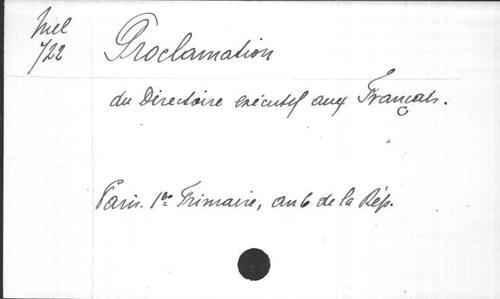 Miel
722
Proclamation
du Directoire exécutif aux Français.
Paris. 1er Frimaire, an 6 de la Rép.